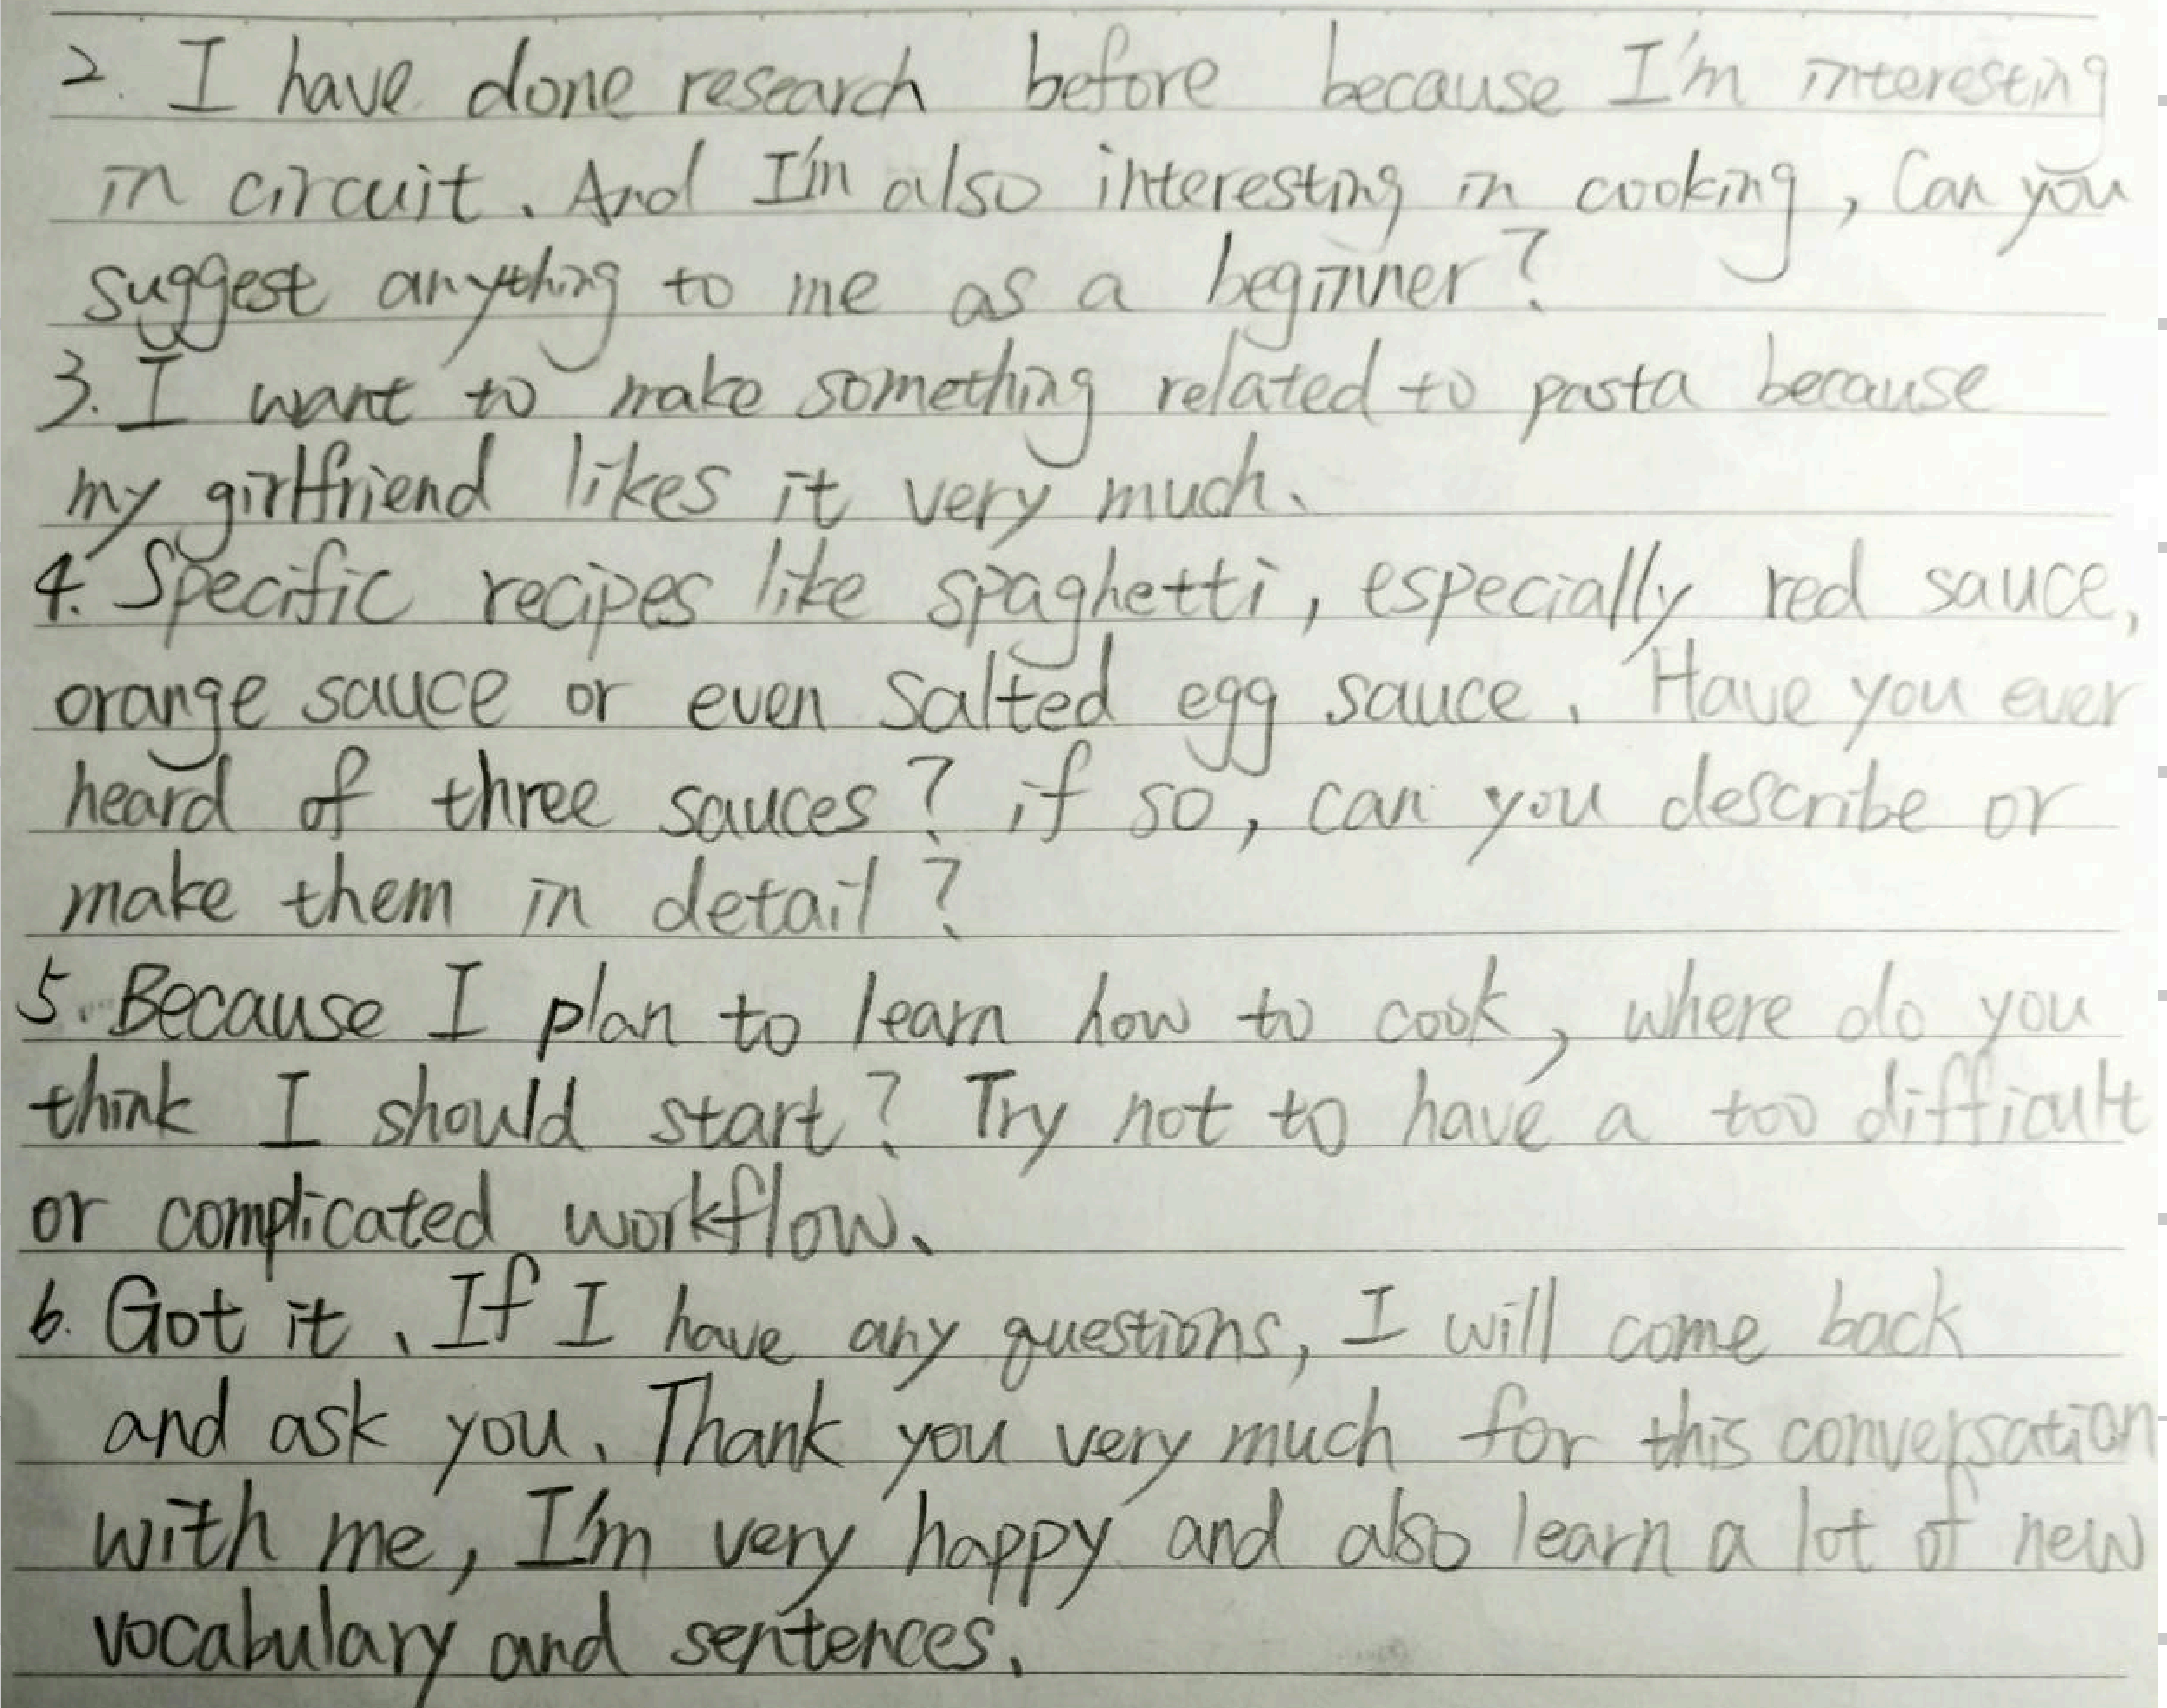 2. I have done research before because I'm interesting
in circuit. And I'm also interesting in cooking, Can you
suggest anything to me as a beginner?
3. I want to make something related to pasta because
my girlfriend likes it very much.
4. Specific recipes like spaghetti, especially red sauce,
orange sauce or even salted egg sauce. Have you ever
heard of three sauces? if so, can you describe or
make them in detail?
5. Because I plan to learn how to cook, where do you
think I should start? Try not to have a too difficult
or complicated workflow.
6. Got it. If I have any questions, I will come back
and ask you. Thank you very much for this conversation
with me, I'm very happy and also learn a lot of new
vocabulary and sentences.